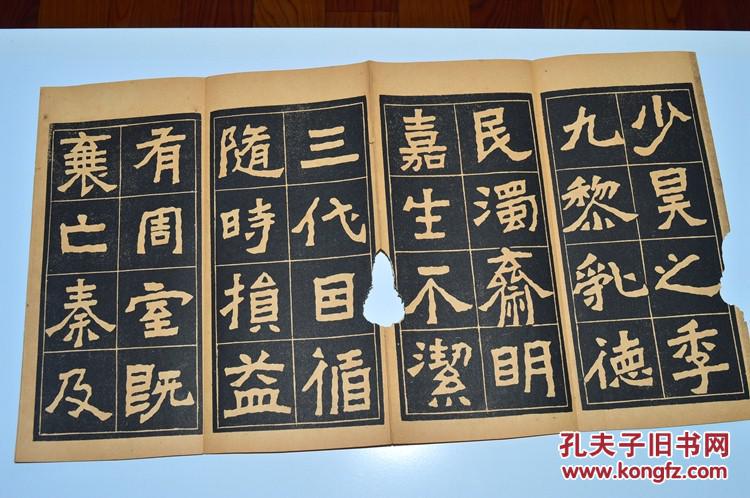 少昊之季
九黎乱德
民濁齋明
嘉生不潔
三代囙循
隨時損益
有周室既
衰亡秦及
孔夫子旧书网
www.kongfz.com